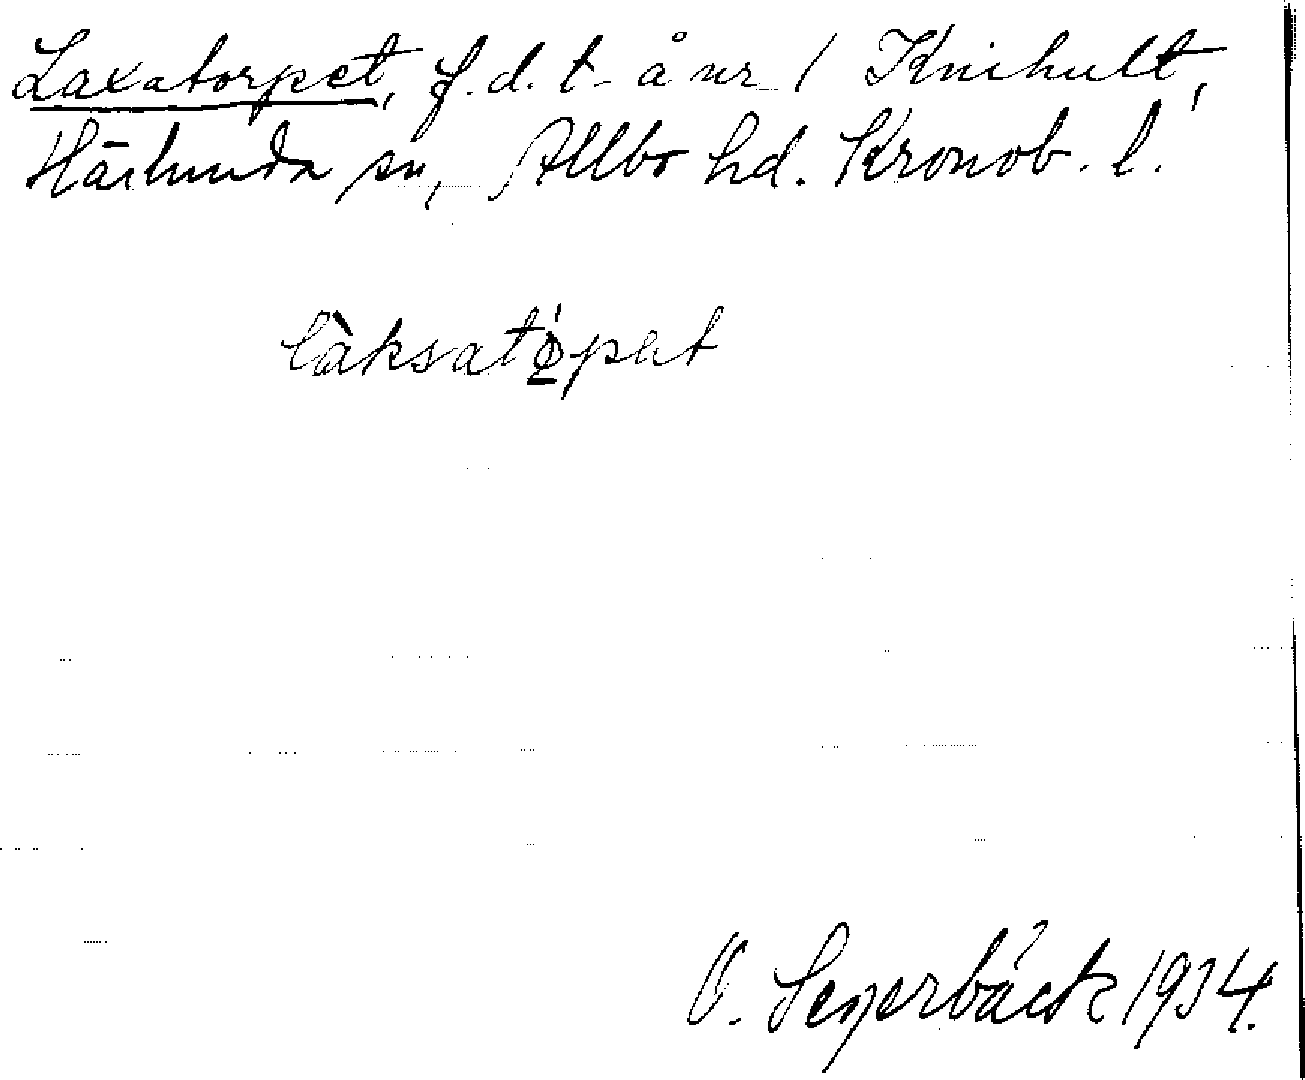 Laxatorpet, f.d. t. å nr 1 Knihult,
Härlunda sn, Allbo hd. Kronob. l.
làksatò̱pet
O. Segerbäck 1934.